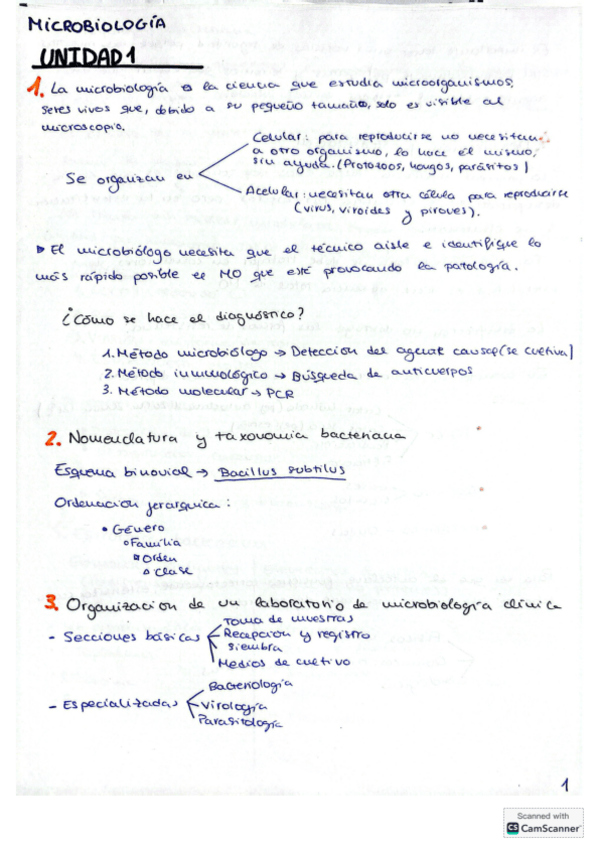 MICROBIOLOGÍA
UNIDAD 1
1. La microbiología es la ciencia que estudia microorganismos,
seres vivos que, debido a su pequeño tamaño, solo es visible al
microscopio.
Celular: para reproducirse no necesitan
a otro organismo, lo hace él mismo,
sin ayuda. (Protozoos, hongos, parásitos)
Se organizan en
Acelular: necesitan otra célula para reproducirse
(virus, viroides y piroves).
El microbiólogo necesita que el técnico aisle e identifique lo
más rápido posible el MO que esté provocando la patología.
¿Cómo se hace el diagnóstico?
1. Método microbiólogo → Detección del agente causal (se cultiva)
2. Método inmunológico → Búsqueda de anticuerpos
3. Método molecular → PCR
2. Nomenclatura y taxonomia bacteriana
Esquema binovial → Bacillus subtilus
Ordenación jerarquica:
• Género
Familia
Orden
Clase
3. Organización de un laboratorio de microbiología clínica
Toma de muestras
- Secciones básicas Recepción y registro
Siembra
Medios de cultivo
Bacteriología
- Especializadas Virología
Parasitología
1
Scanned with
CS CamScanner